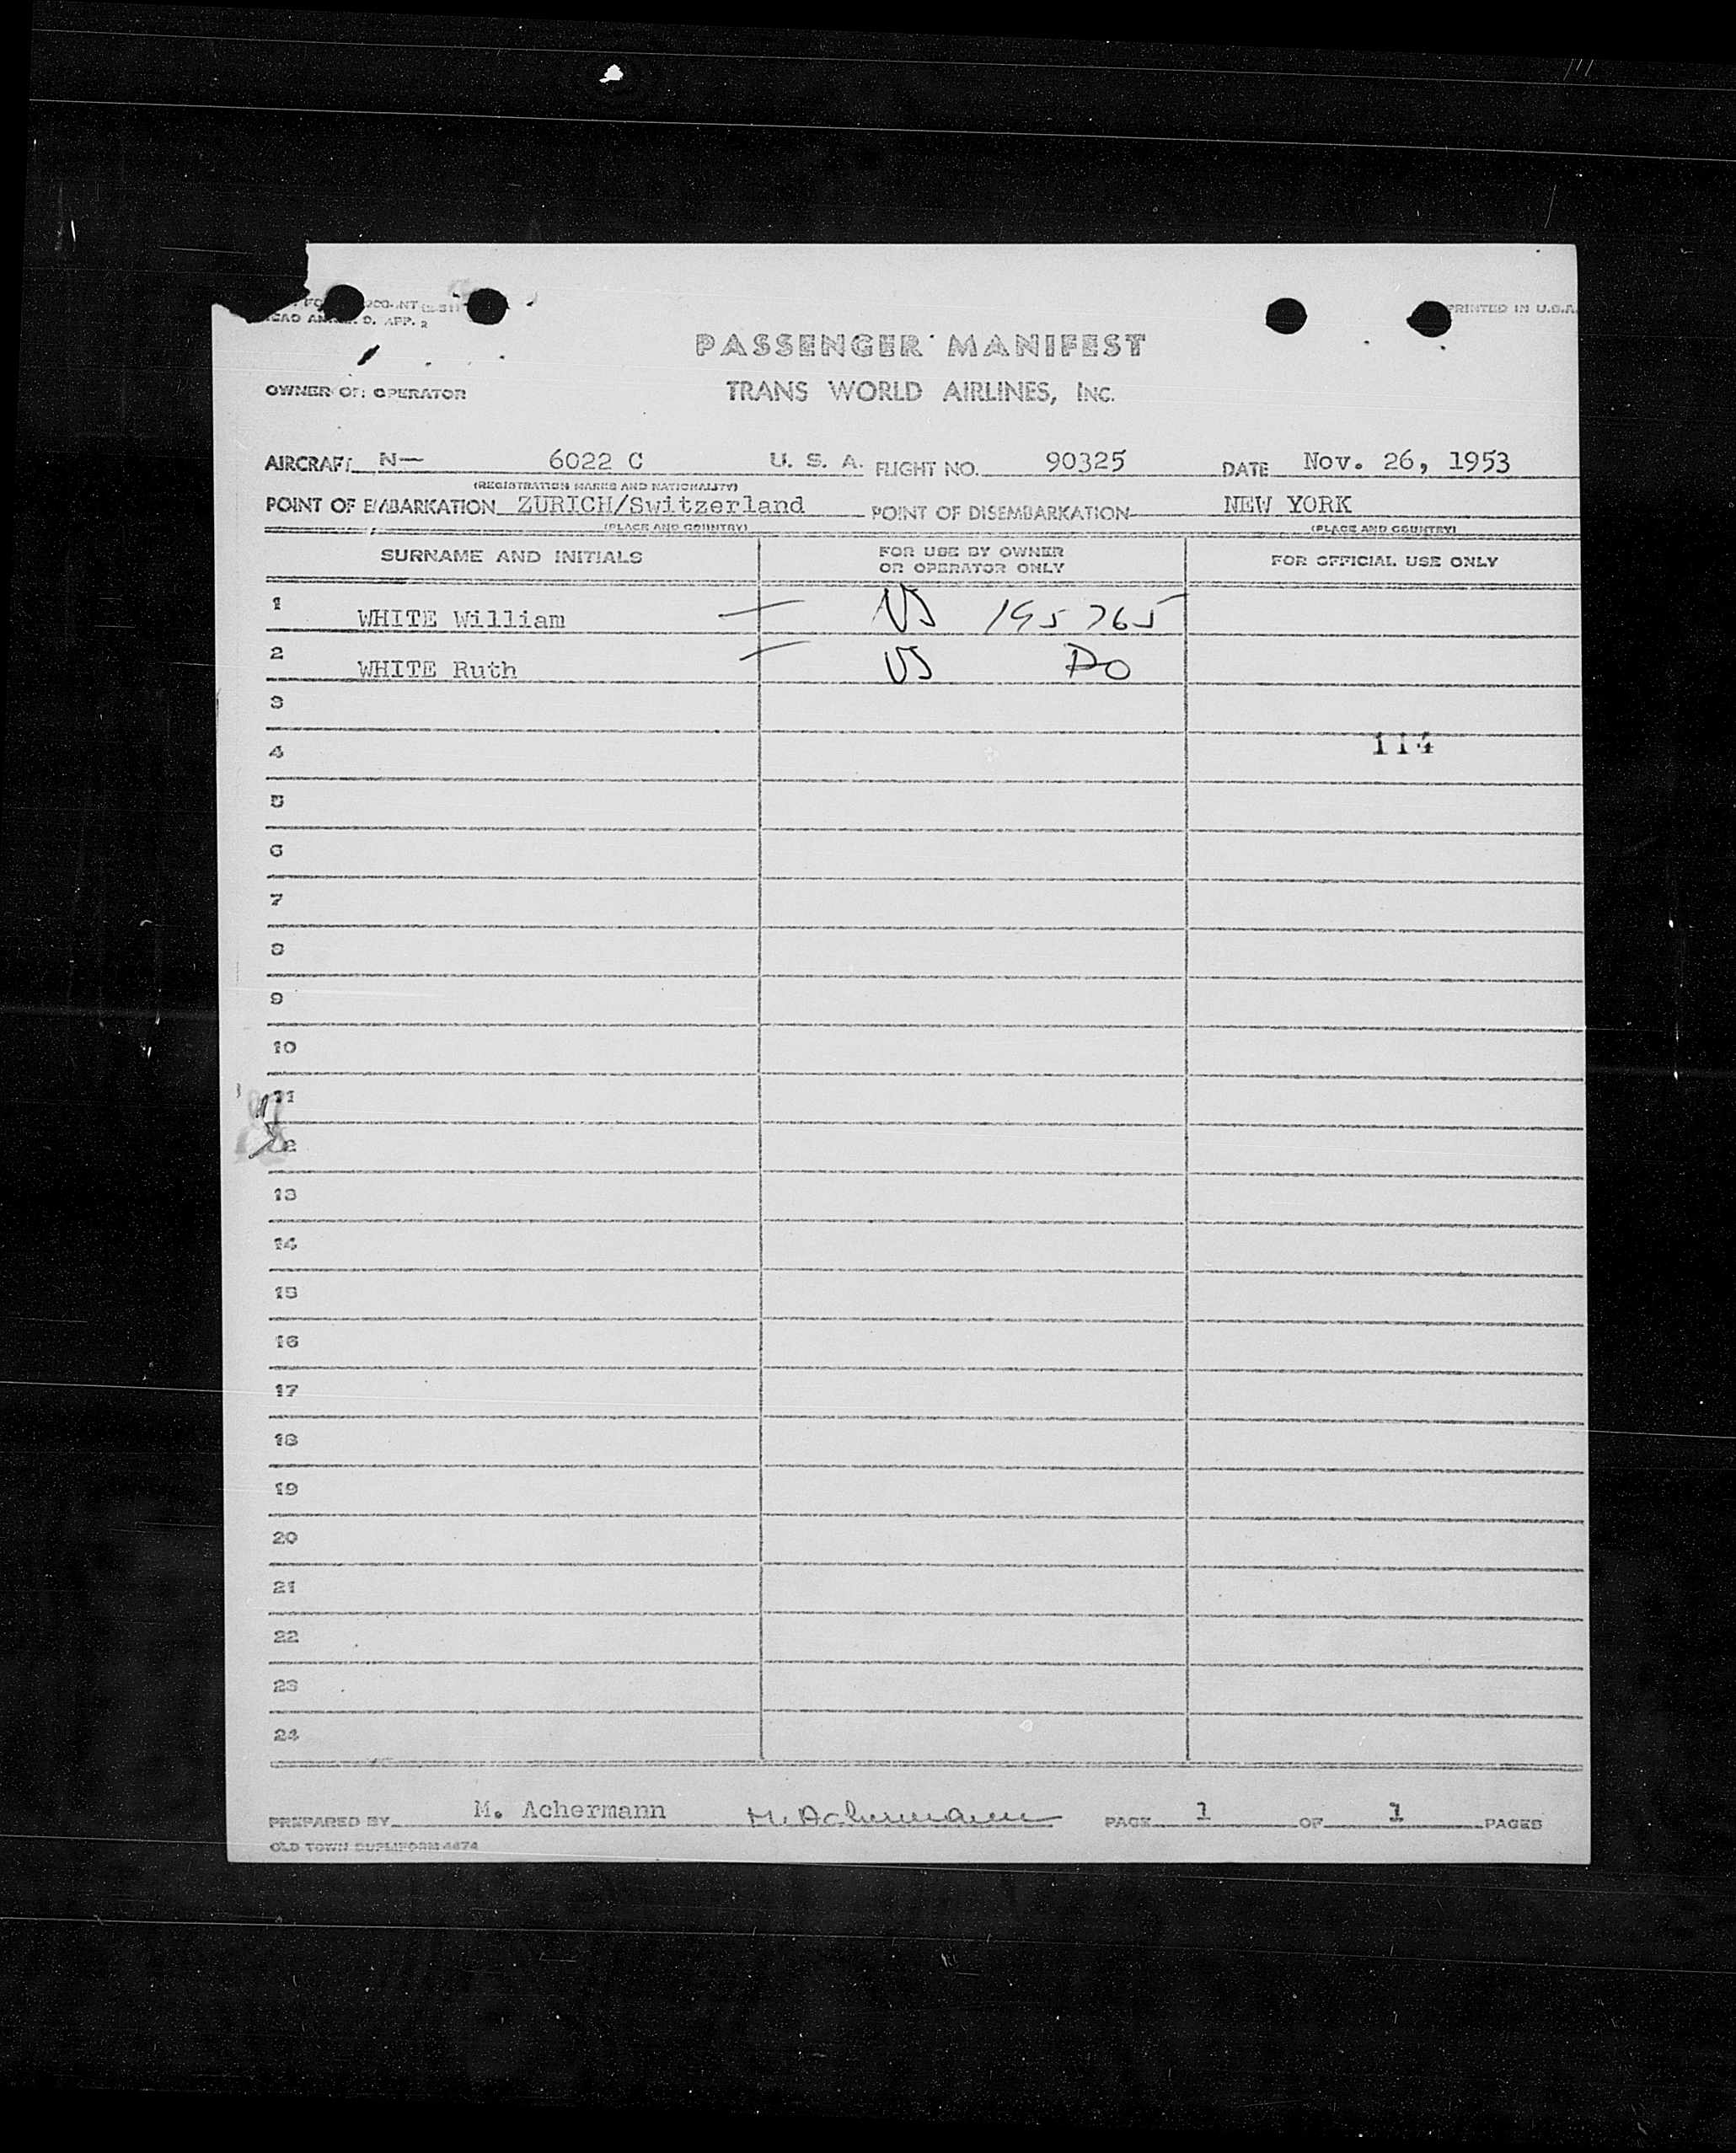 PRINTED IN U.S.A.
ICAO ANNEX 9, APP. 2
PASSENGER MANIFEST
OWNER OR OPERATOR TRANS WORLD AIRLINES, INC.
AIRCRAFT N— 6022 C U. S. A. FLIGHT NO. 90325 DATE Nov. 26, 1953
(REGISTRATION MARKS AND NATIONALITY)
POINT OF EMBARKATION ZURICH/Switzerland POINT OF DISEMBARKATION NEW YORK
(PLACE AND COUNTRY) (PLACE AND COUNTRY)
SURNAME AND INITIALS FOR USE BY OWNER OR OPERATOR ONLY FOR OFFICIAL USE ONLY
1 WHITE William — US 195765
2 WHITE Ruth — US DO
3
4 114
5
6
7
8
9
10
11
12
13
14
15
16
17
18
19
20
21
22
23
24
PREPARED BY M. Achermann M. Achermann PAGE 1 OF 1 PAGES
OLD TOWN DUPLIFORM 4474